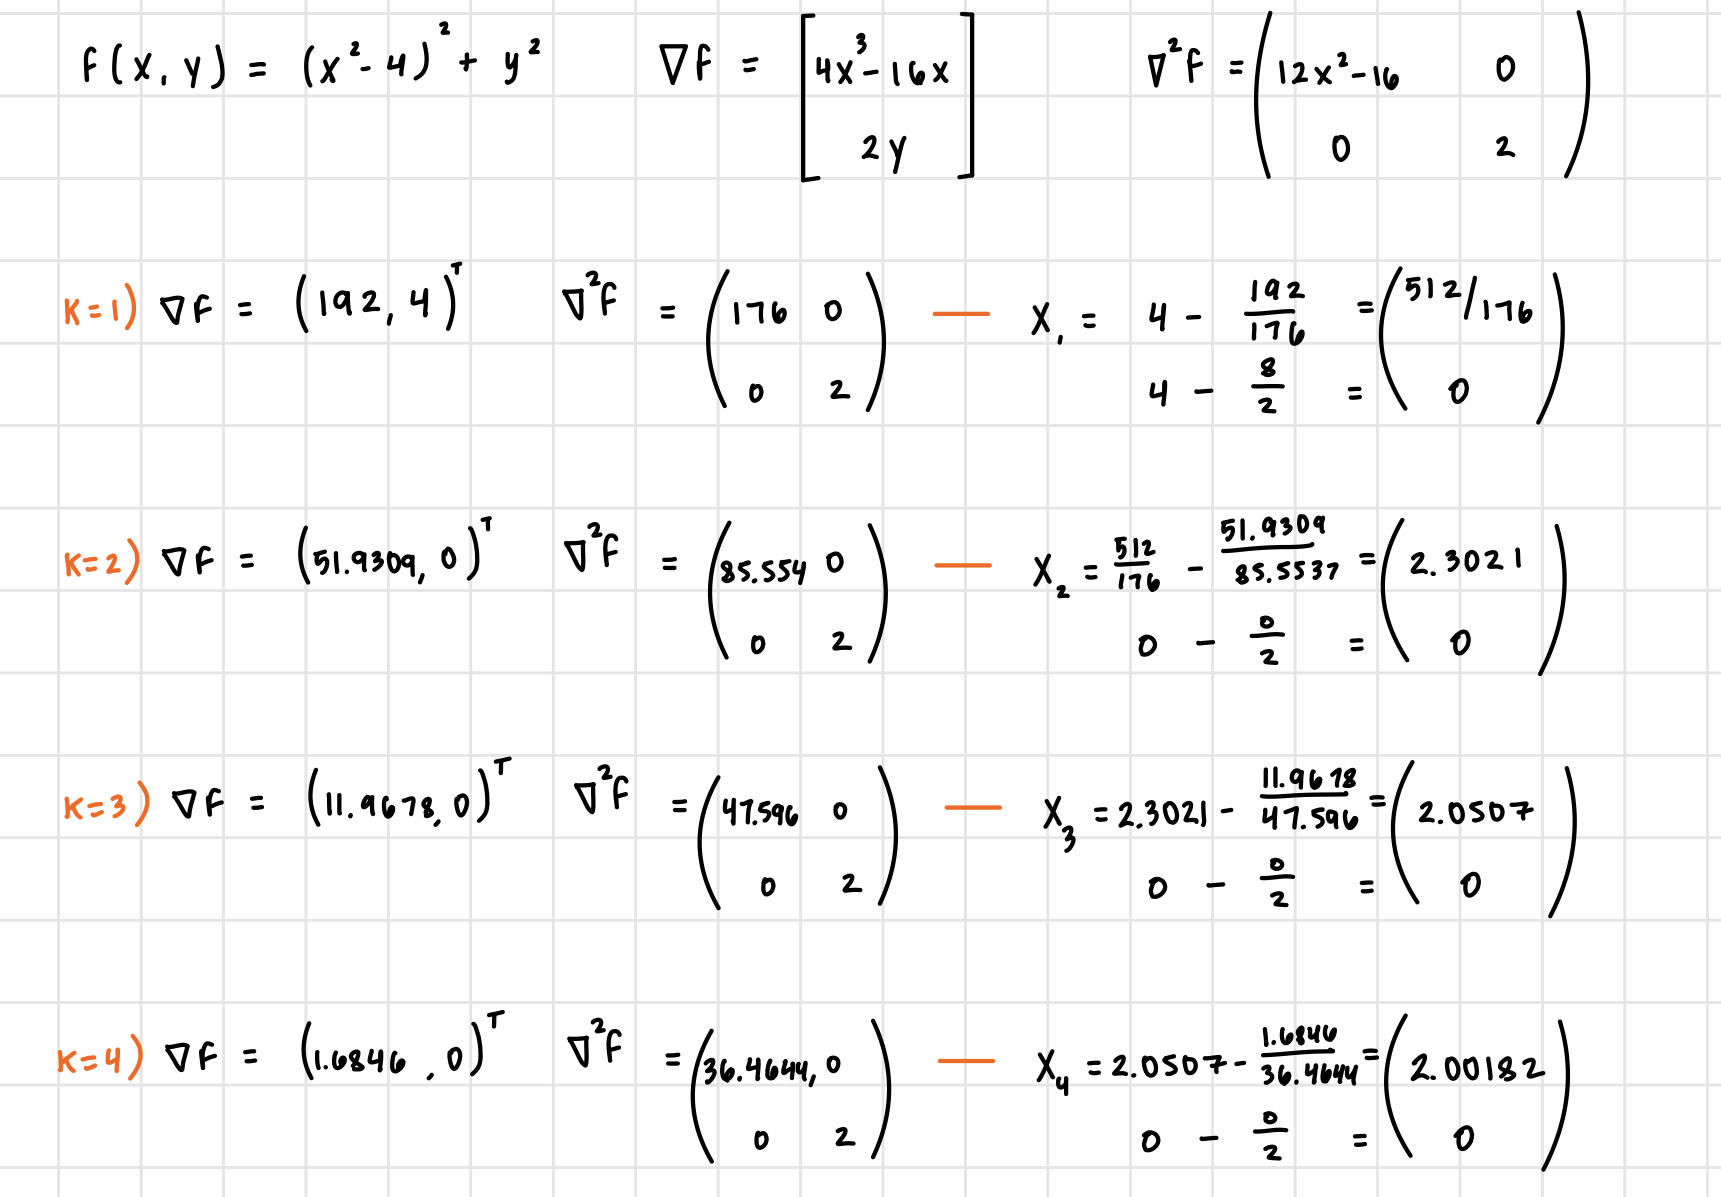 F(x, y) = (x² - 4)² + y²   ∇F = [4x³ - 16x   ∇²F = (12x² - 16   0
2y]   0   2)
K=1) ∇F = (192, 4)ᵀ   ∇²F = (176   0   —   X₁ = 4 - 192/176 = (512/176
0   2)   4 - 8/2 = 0)
K=2) ∇F = (51.9309, 0)ᵀ   ∇²F = (85.554   0   —   X₂ = 512/176 - 51.9309/85.5537 = (2.3021
0   2)   0 - 0/2 = 0)
K=3) ∇F = (11.9678, 0)ᵀ   ∇²F = (47.596   0   —   X₃ = 2.3021 - 11.9678/47.596 = (2.0507
0   2)   0 - 0/2 = 0)
K=4) ∇F = (1.6846, 0)ᵀ   ∇²F = (36.4644, 0   —   X₄ = 2.0507 - 1.6846/36.4644 = (2.00182
0   2)   0 - 0/2 = 0)